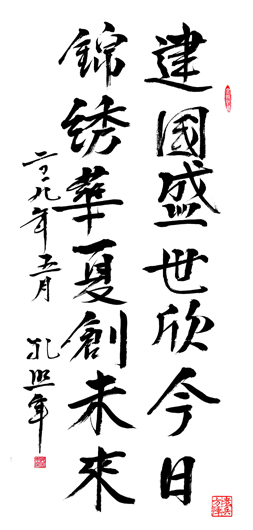 建國盛世欣今日
錦绣華夏創未來
二〇一九年五月 孔照年